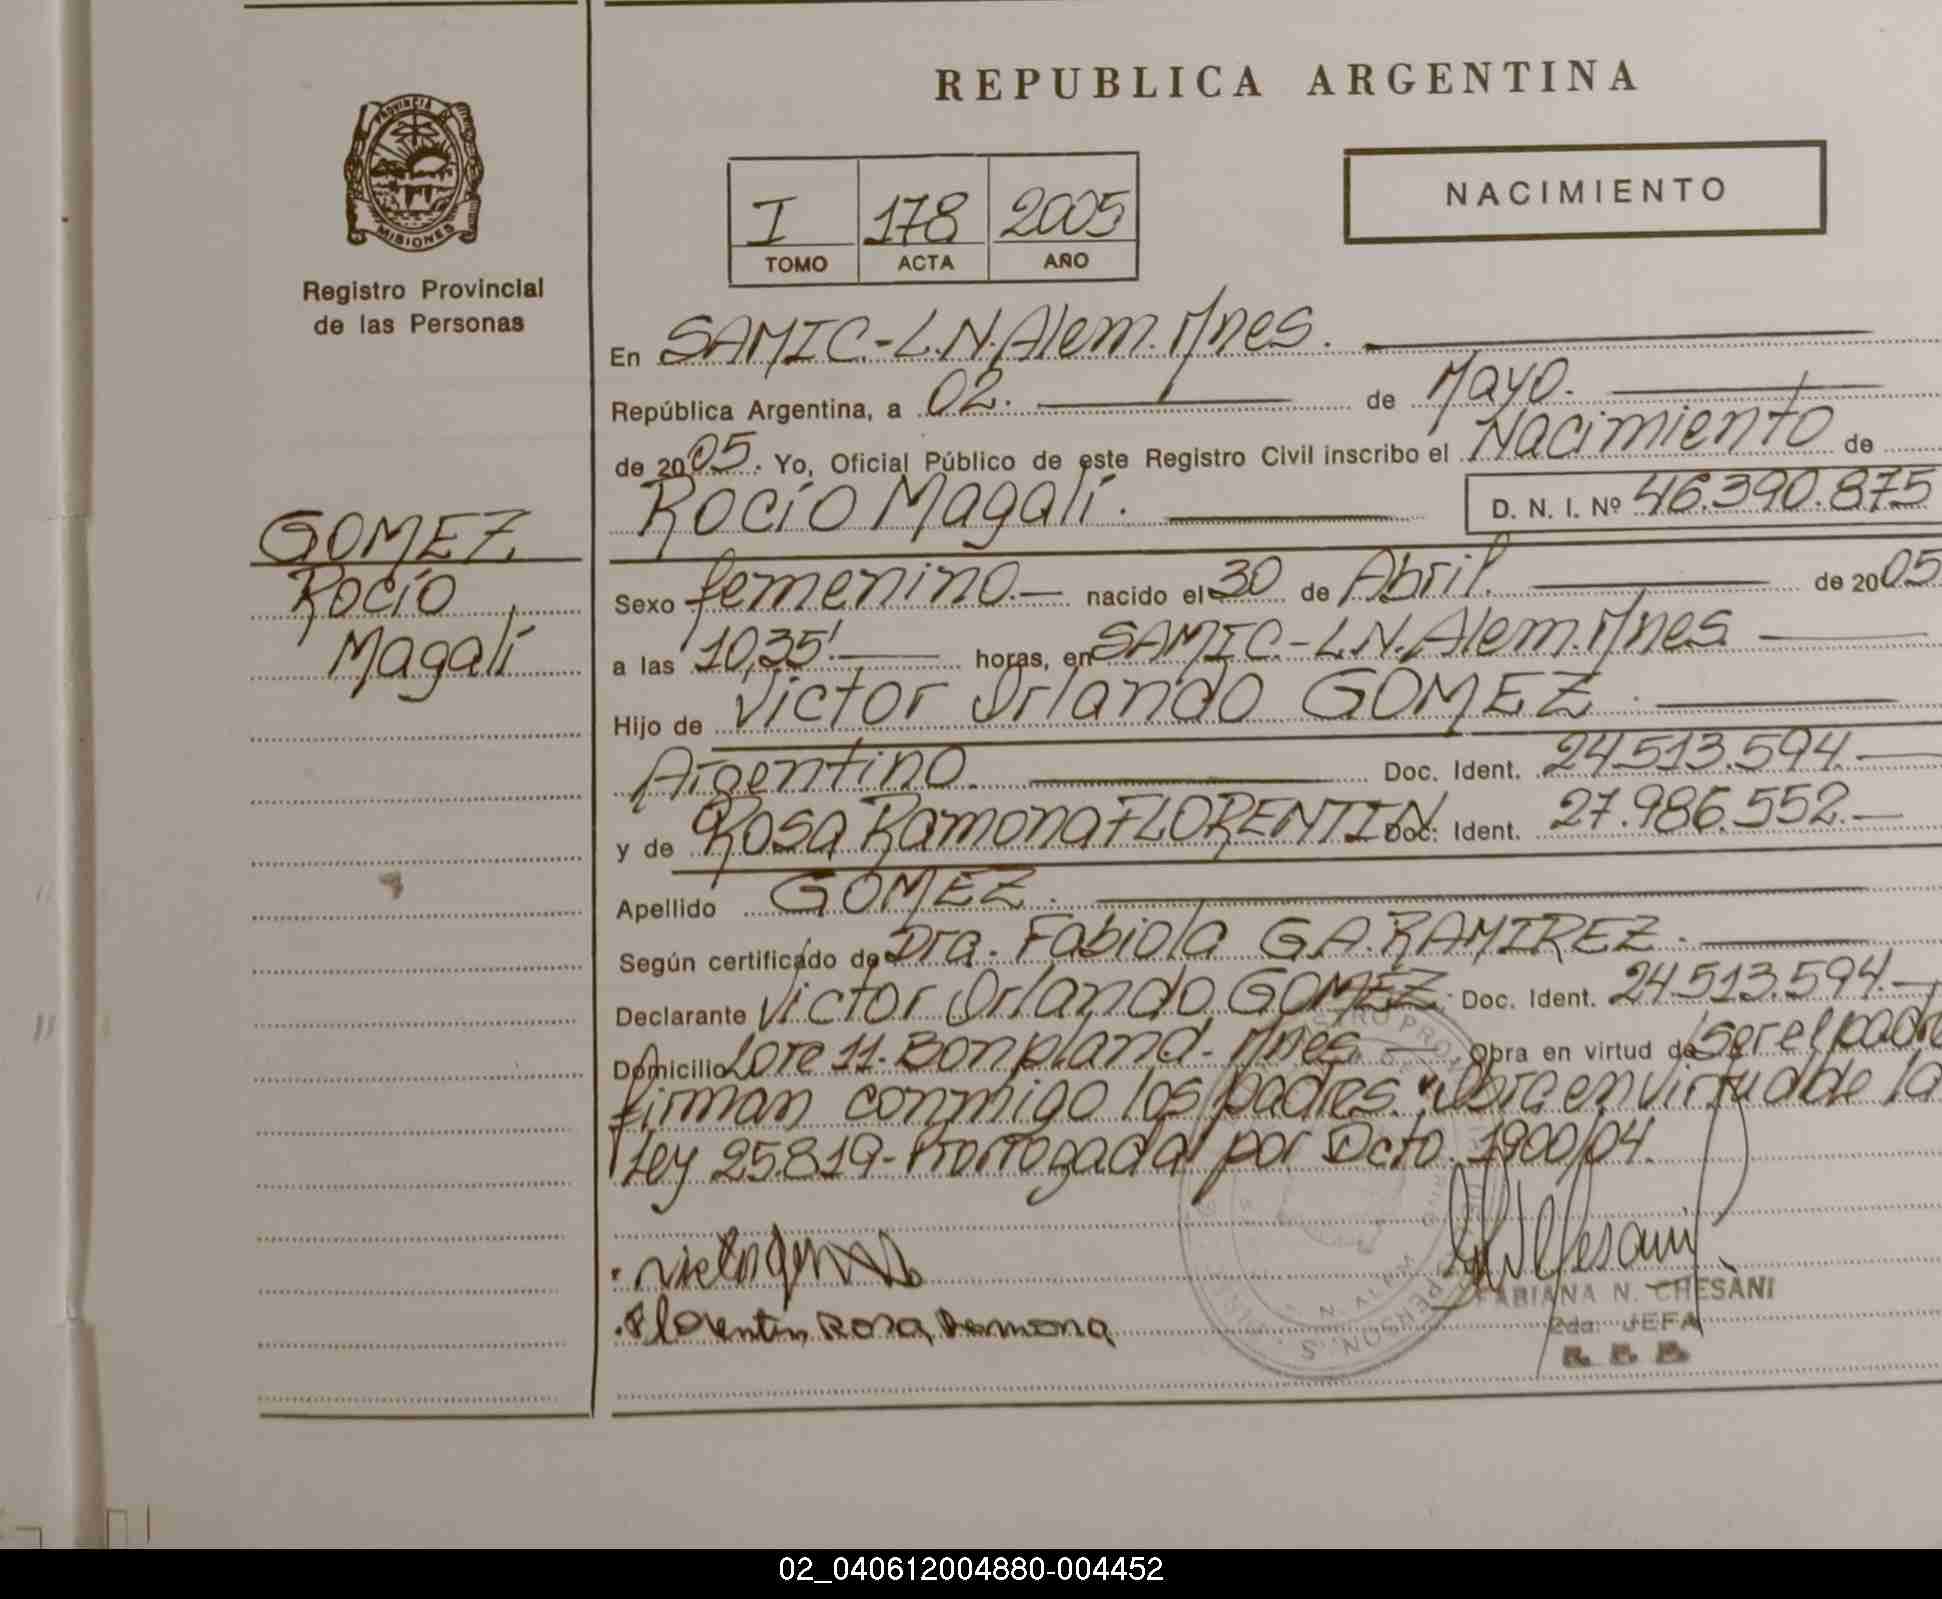 REPUBLICA ARGENTINA
NACIMIENTO
PROVINCIA DE
MISIONES
Registro Provincial
de las Personas
I 178 2005
TOMO ACTA AÑO
En SAMIC.-L.N.Alem.Mnes.
República Argentina, a 02. de Mayo.
de 2005. Yo, Oficial Público de este Registro Civil inscribo el Nacimiento de
Rocío Magalí. D. N. I. Nº 46.390.875
GOMEZ
Rocío
Magalí
Sexo femenino.- nacido el 30 de Abril. de 2005
a las 10,35' horas, en SAMIC.-L.N.Alem.Mnes
Hijo de Victor Orlando GOMEZ.
Argentino. Doc. Ident. 24.513.594.-
y de Rosa Ramona FLORENTIN Doc. Ident. 27.986.552.-
Apellido GOMEZ.
Según certificado de Dra. Fabiola G.A.RAMIREZ.
Declarante Victor Orlando GOMEZ. Doc. Ident. 24.513.594.-
Domicilio Lote 11. Bonpland- Mnes. Obra en virtud de ser el padre
firman conmigo los padres. Obra en virtud de la
Ley 25.819-Prorrogada por Dcto. 1900/04.
Florentin Rosa Ramona
FABIANA N. CHESANI
2da. JEFA
02_040612004880-004452